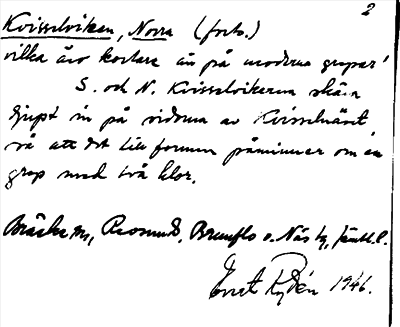 2
Kvisselviken, Norra (forts.)
vilka äro kortare än på moderna grepar.
S. och N. Kvisselvikarna skära
djupt in på sidorna av Kvisselnäset,
så att det till formen påminner om en
grep med två klor.
Bräcke sn, Revsunds, Brunflo o. Näs tg, Jämtl. l.
Ernst Rydén 1946.